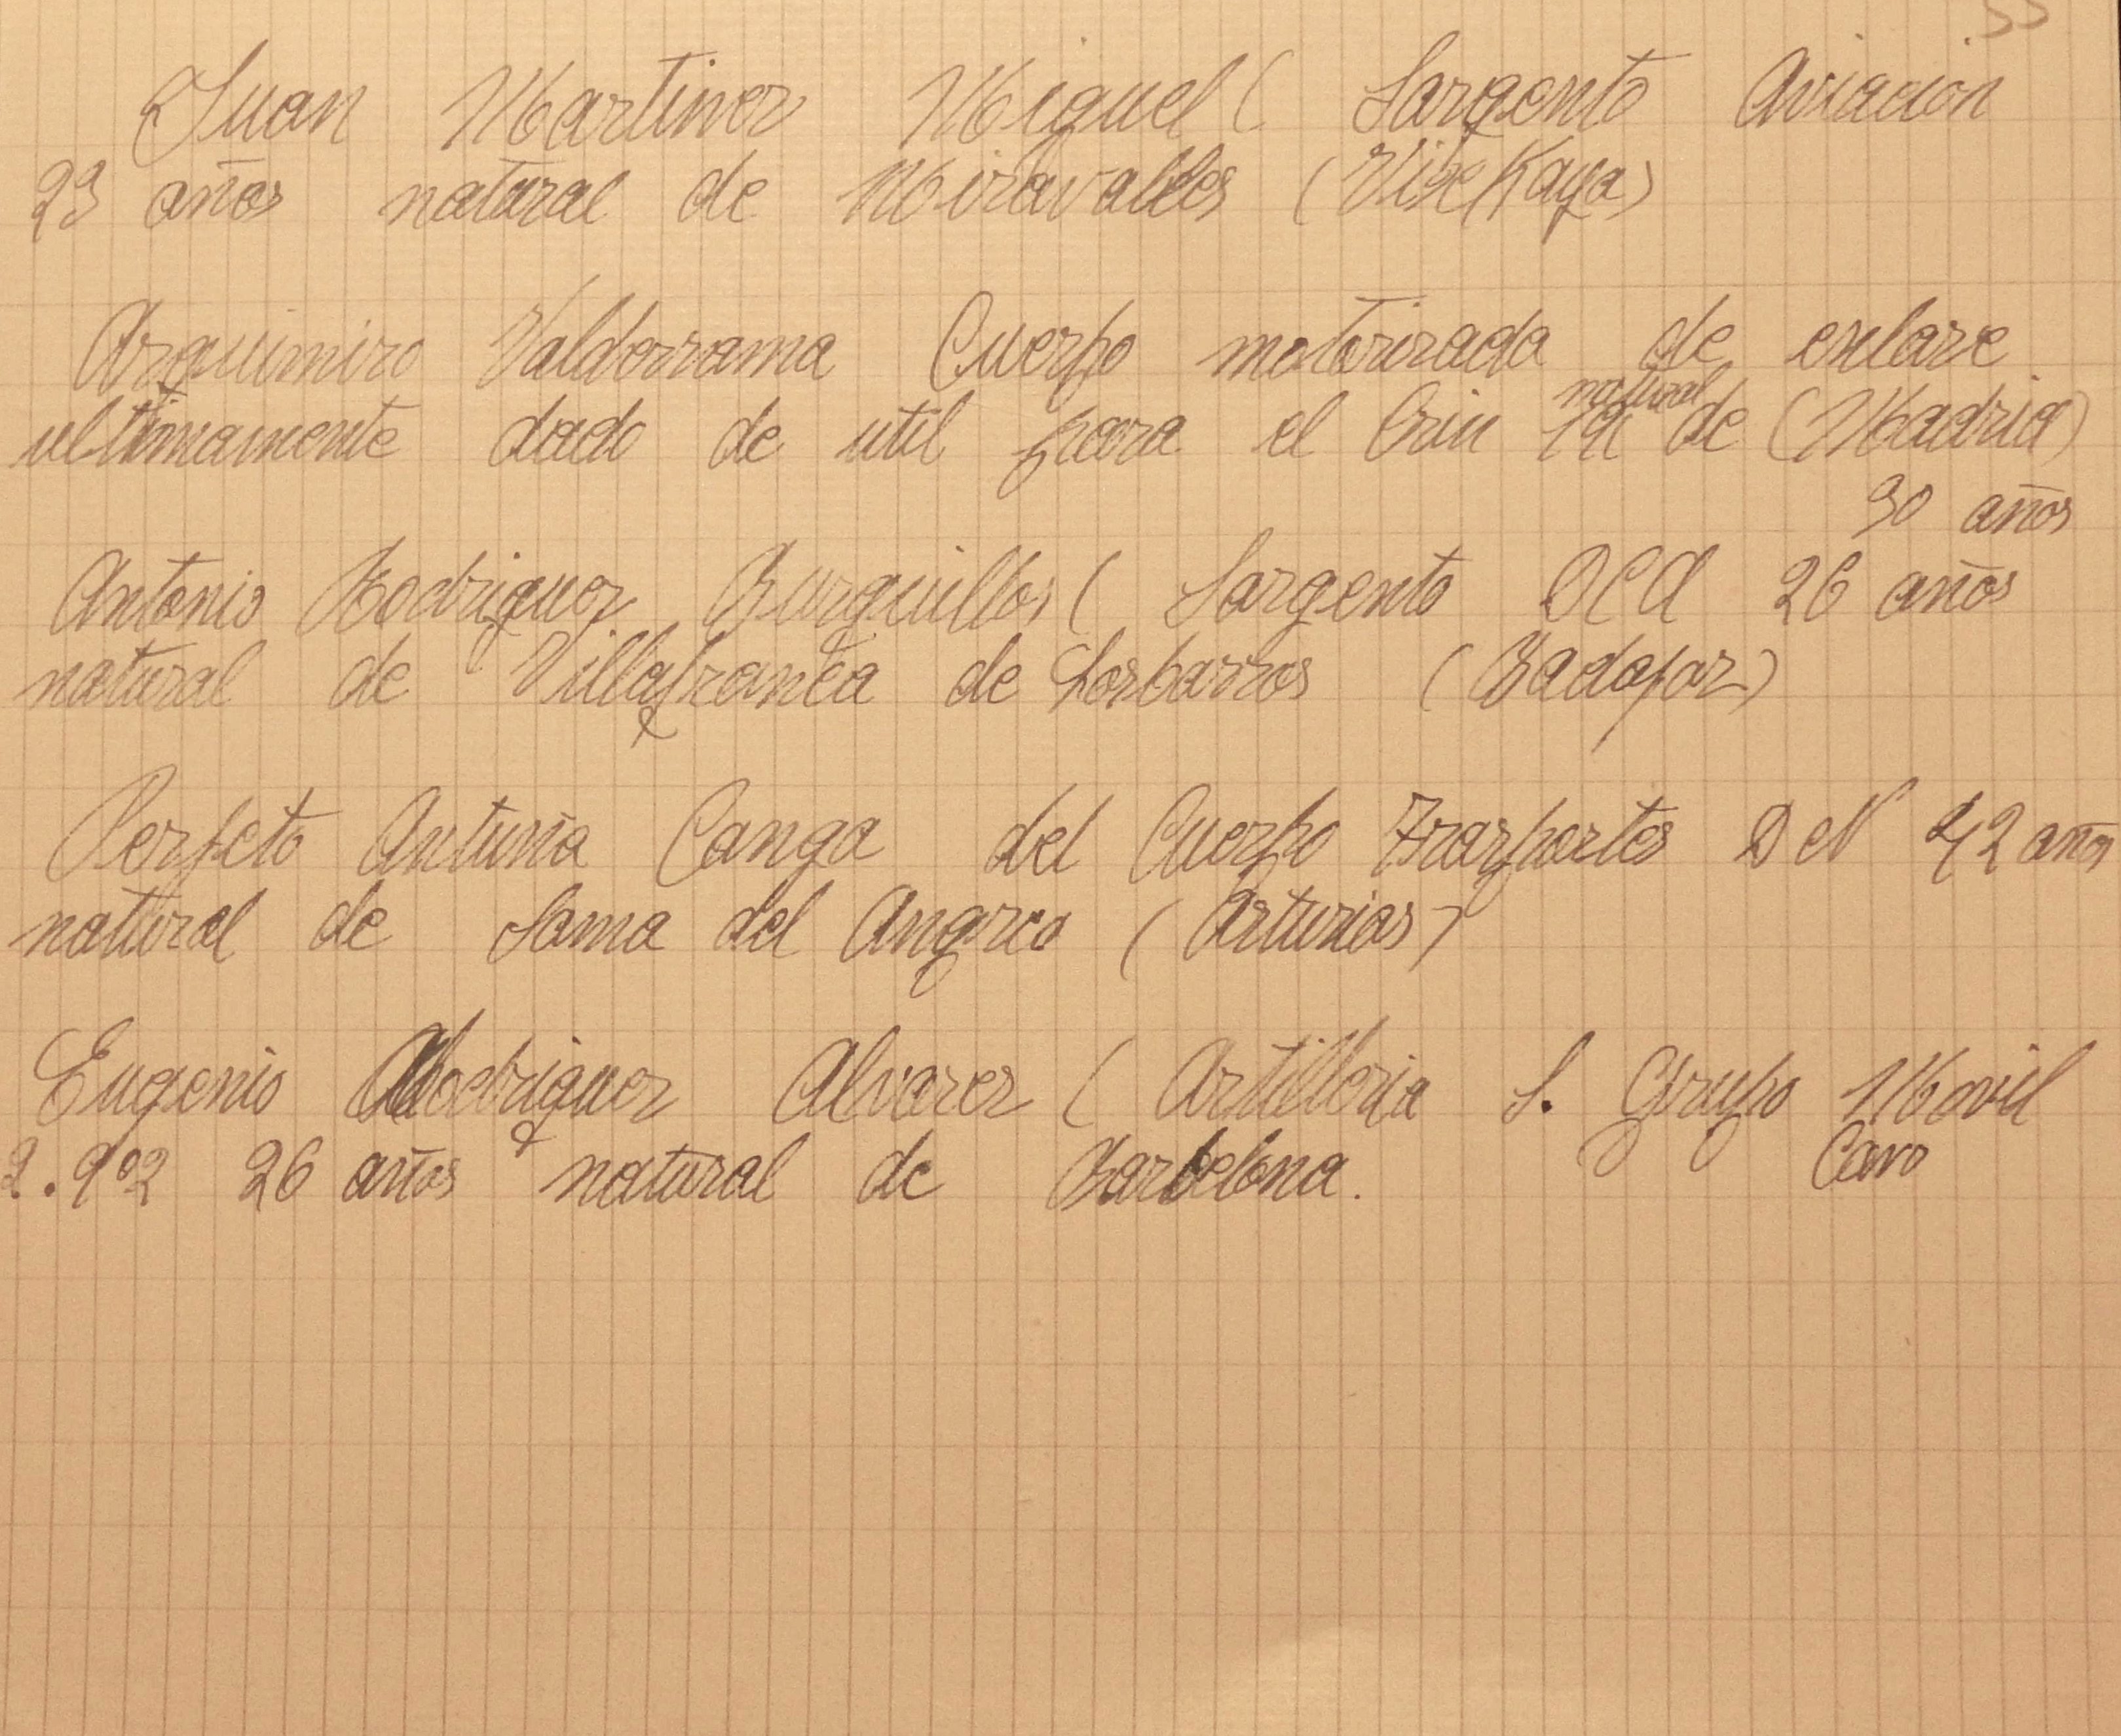 Juan Martinez Miguel ( Sargento Aviacion
23 años natural de Miravalles (Vizckaya)
Arquimiro Valderrama Cuerpo motorizada de enlaze
natural
ultimamente dado de util para el de (Madrid)
30 años
Antonio Rodriguez Burguillos ( Sargento DCA 26 años
natural de Villafranca de Losbarros (Badajoz)
Perfeto Antuña Canga del Cuerpo Trasportes 42 años
natural de Sama del Angreo (Asturias)
Eugenio Rodriguez Alvarez ( Artilleria S. Grupo Movil
26 años natural de Barcelona.